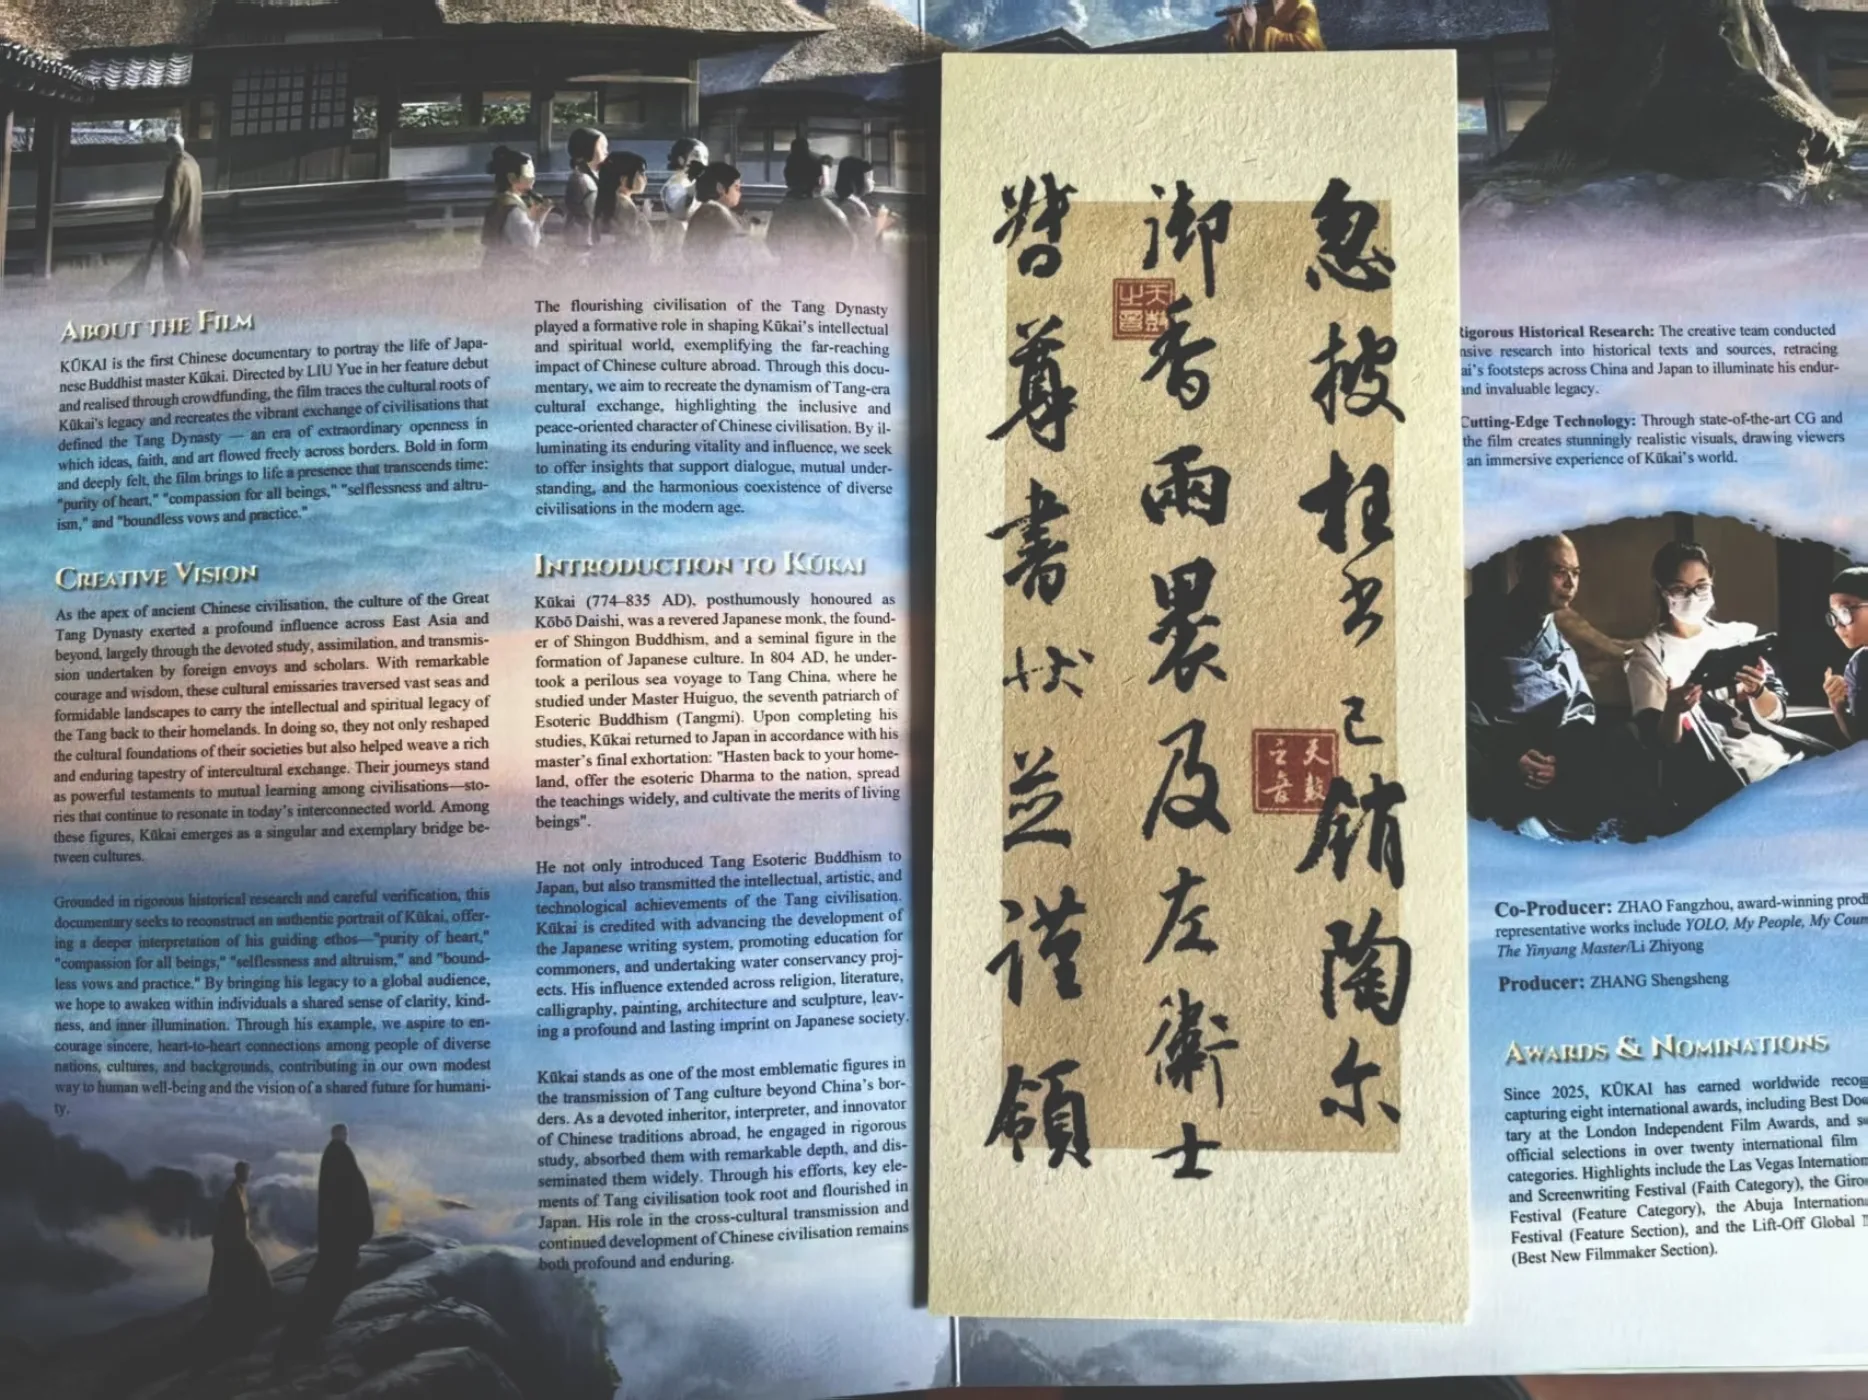 ABOUT THE FILM
KŪKAI is the first Chinese documentary to portray the life of Japa-
nese Buddhist master Kūkai. Directed by LIU Yue in her feature debut
and realised through crowdfunding, the film traces the cultural roots of
Kūkai's legacy and recreates the vibrant exchange of civilisations that
defined the Tang Dynasty — an era of extraordinary openness in
which ideas, faith, and art flowed freely across borders. Bold in form
and deeply felt, the film brings to life a presence that transcends time:
"purity of heart," "compassion for all beings," "selflessness and altru-
ism," and "boundless vows and practice."
CREATIVE VISION
As the apex of ancient Chinese civilisation, the culture of the Great
Tang Dynasty exerted a profound influence across East Asia and
beyond, largely through the devoted study, assimilation, and transmis-
sion undertaken by foreign envoys and scholars. With remarkable
courage and wisdom, these cultural emissaries traversed vast seas and
formidable landscapes to carry the intellectual and spiritual legacy of
the Tang back to their homelands. In doing so, they not only reshaped
the cultural foundations of their societies but also helped weave a rich
and enduring tapestry of intercultural exchange. Their journeys stand
as powerful testaments to mutual learning among civilisations—sto-
ries that continue to resonate in today's interconnected world. Among
these figures, Kūkai emerges as a singular and exemplary bridge be-
tween cultures.
Grounded in rigorous historical research and careful verification, this
documentary seeks to reconstruct an authentic portrait of Kūkai, offer-
ing a deeper interpretation of his guiding ethos—"purity of heart,"
"compassion for all beings," "selflessness and altruism," and "bound-
less vows and practice." By bringing his legacy to a global audience,
we hope to awaken within individuals a shared sense of clarity, kind-
ness, and inner illumination. Through his example, we aspire to en-
courage sincere, heart-to-heart connections among people of diverse
nations, cultures, and backgrounds, contributing in our own modest
way to human well-being and the vision of a shared future for humani-
ty.
The flourishing civilisation of the Tang Dynasty
played a formative role in shaping Kūkai's intellectual
and spiritual world, exemplifying the far-reaching
impact of Chinese culture abroad. Through this docu-
mentary, we aim to recreate the dynamism of Tang-era
cultural exchange, highlighting the inclusive and
peace-oriented character of Chinese civilisation. By il-
luminating its enduring vitality and influence, we seek
to offer insights that support dialogue, mutual under-
standing, and the harmonious coexistence of diverse
civilisations in the modern age.
INTRODUCTION TO KŪKAI
Kūkai (774–835 AD), posthumously honoured as
Kōbō Daishi, was a revered Japanese monk, the found-
er of Shingon Buddhism, and a seminal figure in the
formation of Japanese culture. In 804 AD, he under-
took a perilous sea voyage to Tang China, where he
studied under Master Huiguo, the seventh patriarch of
Esoteric Buddhism (Tangmi). Upon completing his
studies, Kūkai returned to Japan in accordance with his
master's final exhortation: "Hasten back to your home-
land, offer the esoteric Dharma to the nation, spread
the teachings widely, and cultivate the merits of living
beings".
He not only introduced Tang Esoteric Buddhism to
Japan, but also transmitted the intellectual, artistic, and
technological achievements of the Tang civilisation.
Kūkai is credited with advancing the development of
the Japanese writing system, promoting education for
commoners, and undertaking water conservancy proj-
ects. His influence extended across religion, literature,
calligraphy, painting, architecture and sculpture, leav-
ing a profound and lasting imprint on Japanese society.
Kūkai stands as one of the most emblematic figures in
the transmission of Tang culture beyond China's bor-
ders. As a devoted inheritor, interpreter, and innovator
of Chinese traditions abroad, he engaged in rigorous
study, absorbed them with remarkable depth, and dis-
seminated them widely. Through his efforts, key ele-
ments of Tang civilisation took root and flourished in
Japan. His role in the cross-cultural transmission and
continued development of Chinese civilisation remains
both profound and enduring.
忽披枉书已銷陶尔
御香兩裹及左衛士
督尊書状並謹領
天鼓之音
天鼓之音
Rigorous Historical Research: The creative team conducted
research into historical texts and sources, retracing
footsteps across China and Japan to illuminate his endur-
and invaluable legacy.
Cutting-Edge Technology: Through state-of-the-art CG and
the film creates stunningly realistic visuals, drawing viewers
an immersive experience of Kūkai's world.
Co-Producer: ZHAO Fangzhou, award-winning
representative works include YOLO, My People, My
The Yinyang Master/Li Zhiyong
Producer: ZHANG Shengsheng
AWARDS & NOMINATIONS
Since 2025, KŪKAI has earned worldwide
capturing eight international awards, including Best
tary at the London Independent Film Awards, and
official selections in over twenty international film
categories. Highlights include the Las Vegas
and Screenwriting Festival (Faith Category), the
Festival (Feature Category), the Abuja
Festival (Feature Section), and the Lift-Off Global
(Best New Filmmaker Section).